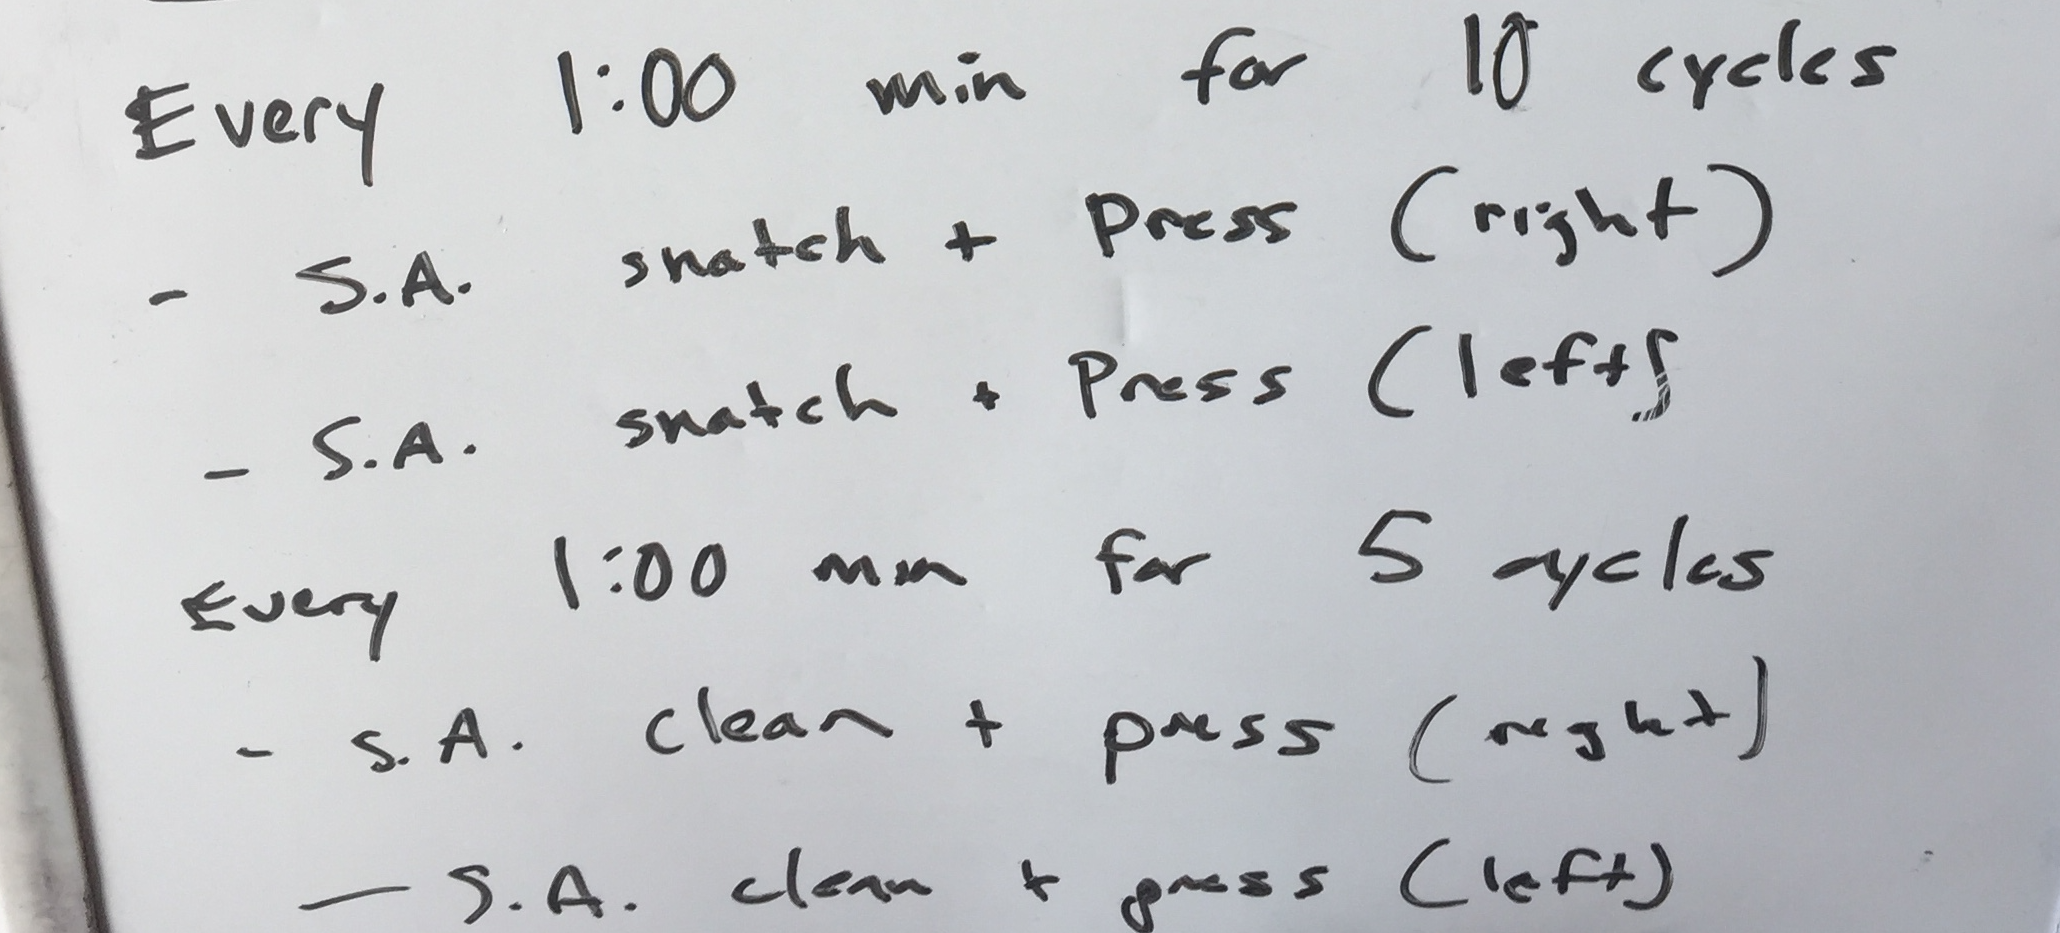 Every 1:00 min for 10 cycles
- S.A. snatch + Press (right)
- S.A. snatch + Press (left)
Every 1:00 min for 5 cycles
- S.A. clean + press (right)
- S.A. clean + press (left)